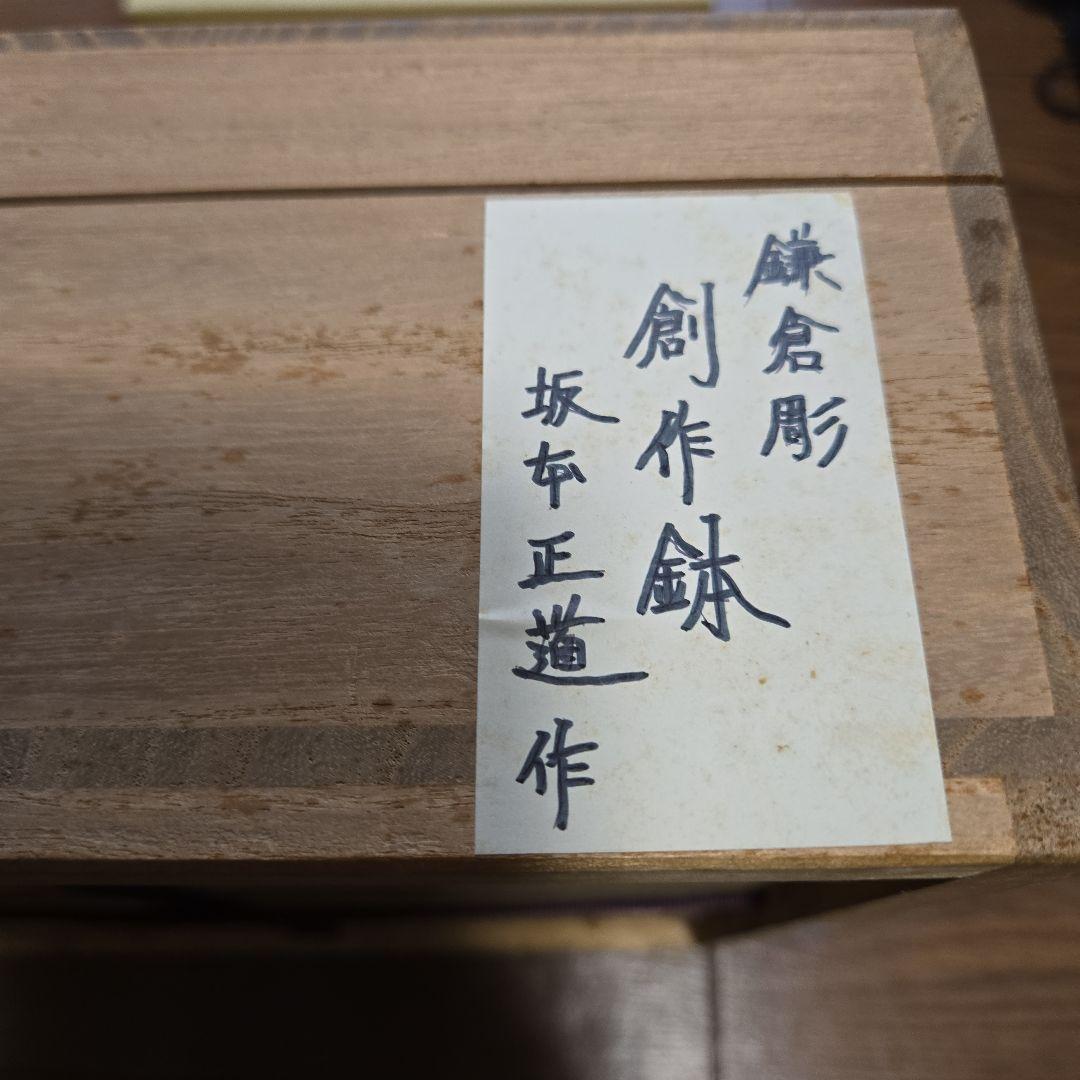 鎌倉彫
創作鉢
坂本正道作